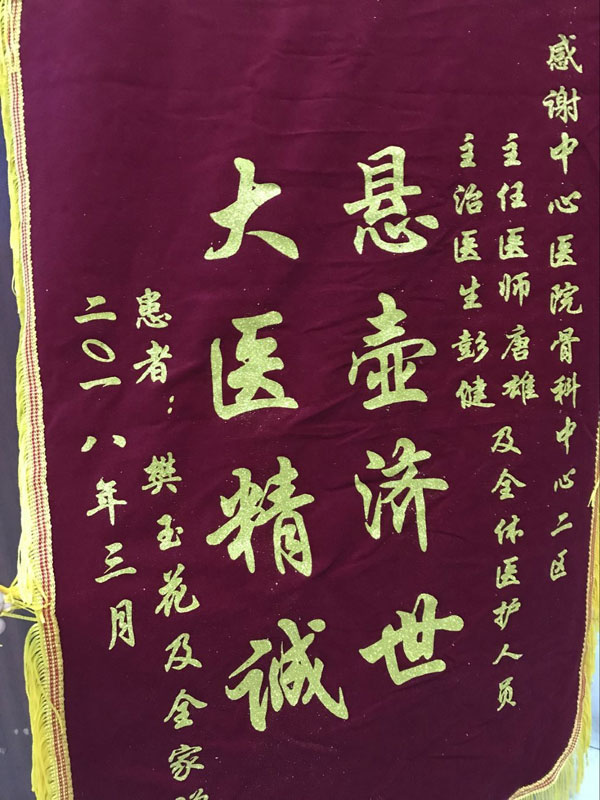 感谢中心医院骨科中心二区
主任医师唐雄
主治医生彭健
及全体医护人员
悬壶济世
大医精诚
患者：樊玉花及全家
二〇一八年三月